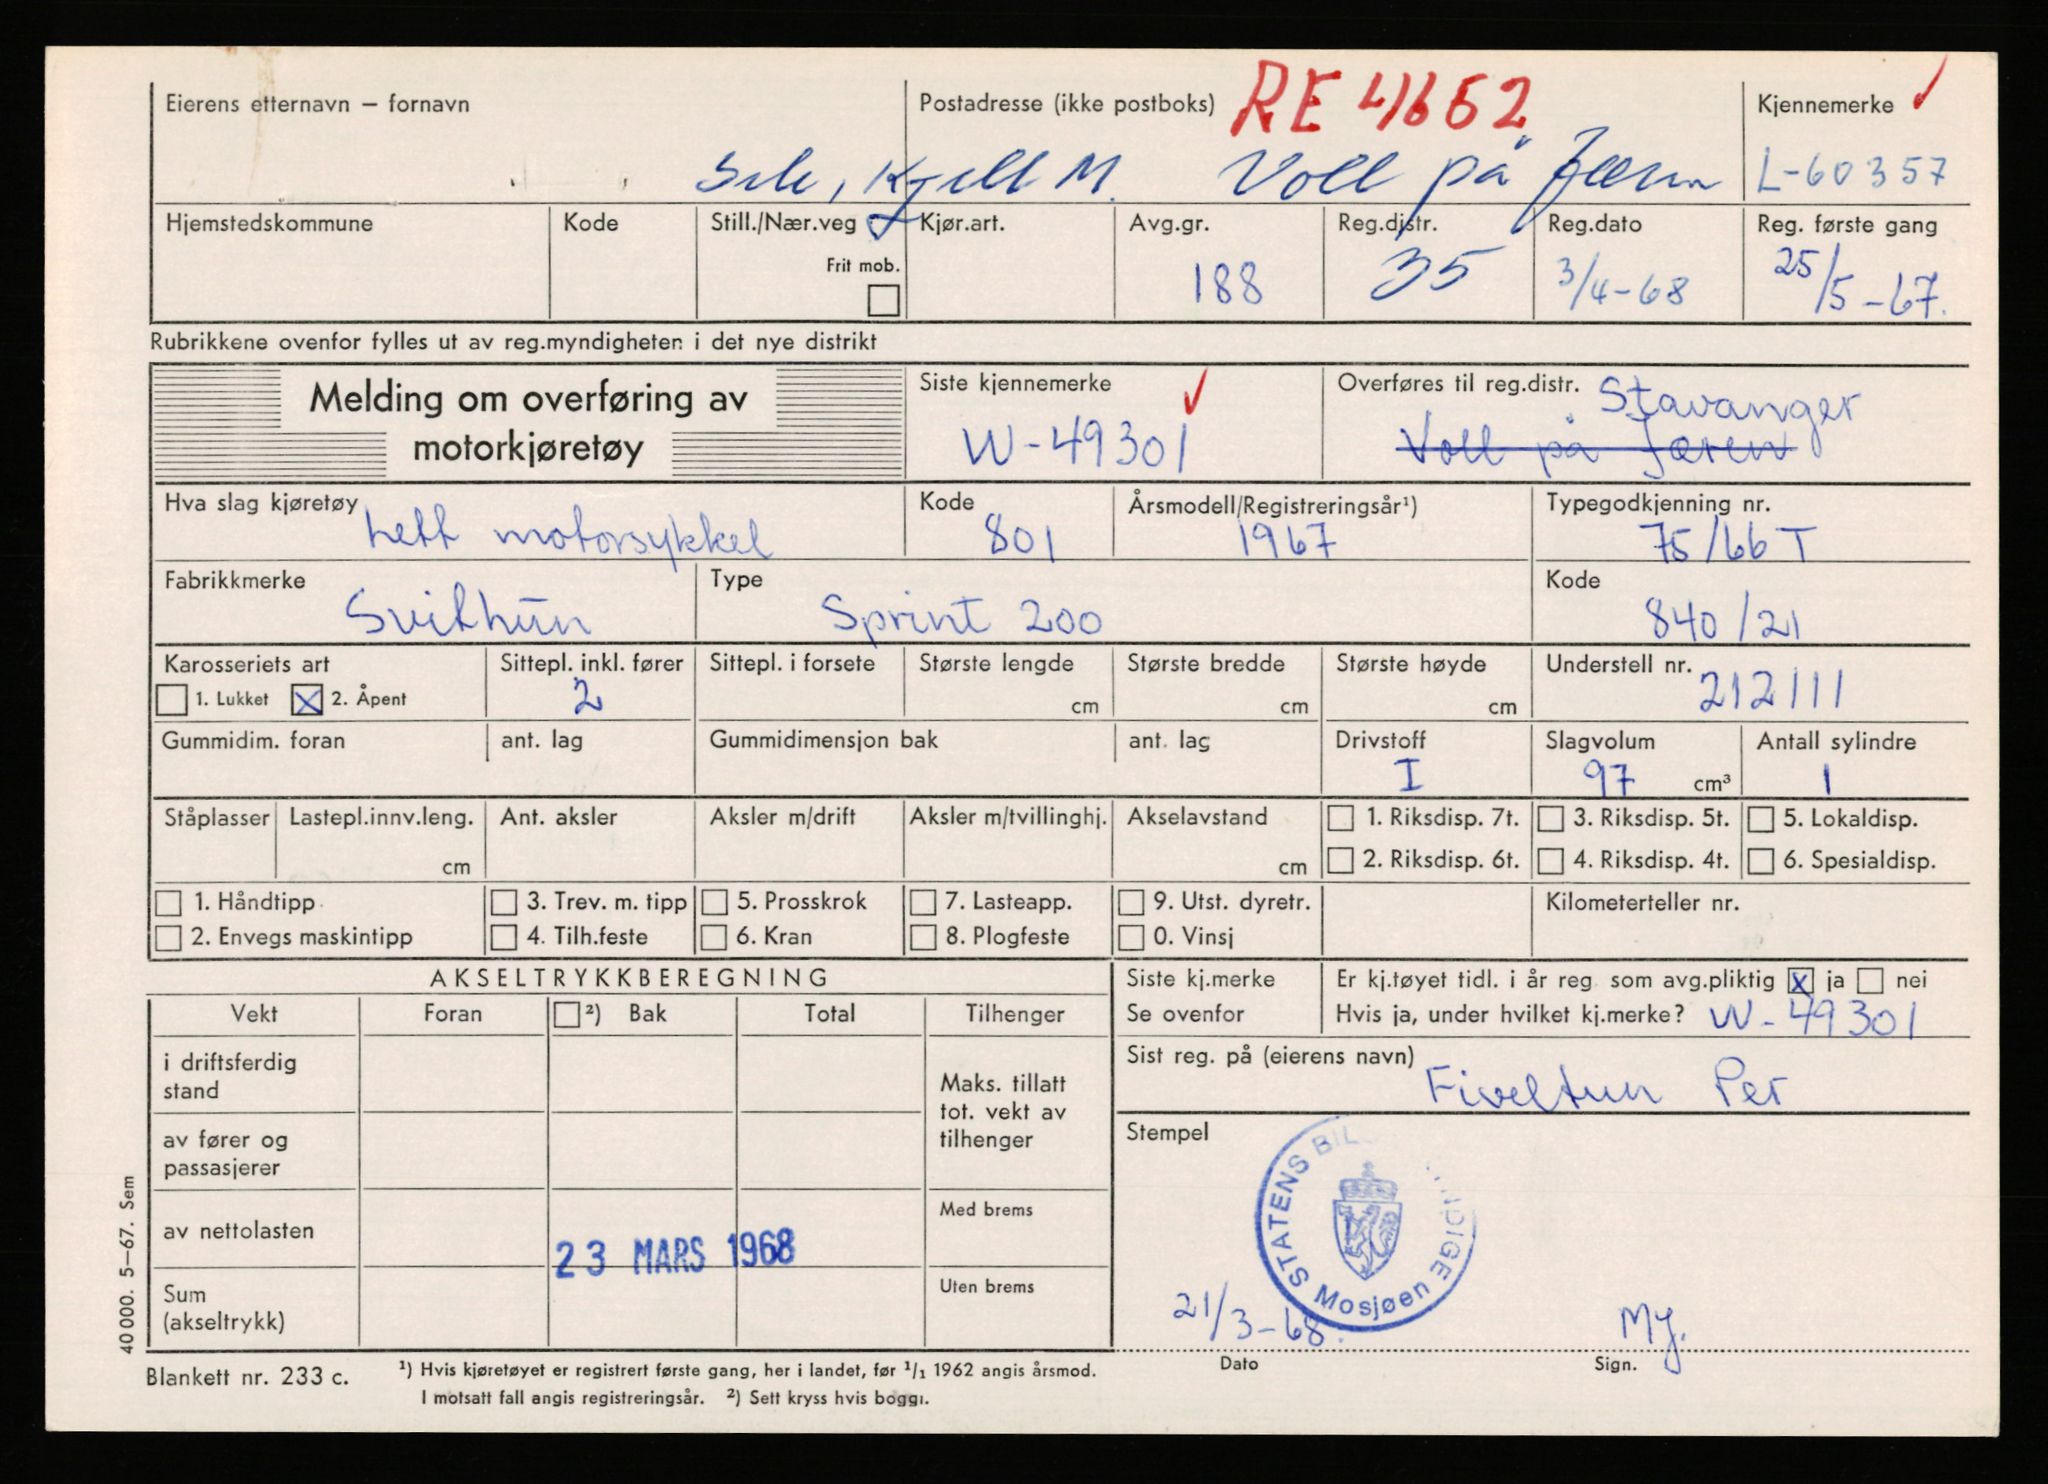 Eierens etternavn – fornavn Postadresse (ikke postboks) RE 41662 Kjennemerke
Sele, Kjell M. Voll på Jæren L-60357
Hjemstedskommune Kode Still./Nær.veg Kjør.art. Avg.gr. Reg.distr. Reg.dato Reg. første gang
Frit mob. 188 35 3/4-68 25/5-67.
Rubrikkene ovenfor fylles ut av reg.myndigheten i det nye distrikt
Melding om overføring av
motorkjøretøy
Siste kjennemerke Overføres til reg.distr. Stavanger
W-49301 Voll på Jæren
Hva slag kjøretøy Kode Årsmodell/Registreringsår¹) Typegodkjenning nr.
Lett motorsykkel 801 1967 75/66 T
Fabrikkmerke Type Kode
Svithun Sprint 200 840/21
Karosseriets art Sittepl. inkl. fører Sittepl. i forsete Største lengde Største bredde Største høyde Understell nr.
1. Lukket X 2. Åpent 2 cm cm cm 212111
Gummidim. foran ant. lag Gummidimensjon bak ant. lag Drivstoff Slagvolum Antall sylindre
I 97 cm³ 1
Ståplasser Lastepl.innv.leng. Ant. aksler Aksler m/drift Aksler m/tvillinghj. Akselavstand 1. Riksdisp. 7t. 3. Riksdisp. 5t. 5. Lokaldisp.
cm cm 2. Riksdisp. 6t. 4. Riksdisp. 4t. 6. Spesialdisp.
1. Håndtipp 3. Trev. m. tipp 5. Prosskrok 7. Lasteapp. 9. Utst. dyretr. Kilometerteller nr.
2. Envegs maskintipp 4. Tilh.feste 6. Kran 8. Plogfeste 0. Vinsj
AKSELTRYKKBEREGNING
Siste kj.merke Er kj.tøyet tidl. i år reg. som avg.pliktig X ja nei
Se ovenfor Hvis ja, under hvilket kj.merke? W-49301
Vekt Foran ²) Bak Total Tilhenger
Sist reg. på (eierens navn)
Fiveltun Per
i driftsferdig
stand
Maks. tillatt
tot. vekt av
tilhenger
av fører og
passasjerer
Stempel
STATENS BIL NDIGE
Mosjøen
av nettolasten Med brems
23 MARS 1968
Sum
(akseltrykk)
Uten brems
21/3-68. My.
Dato Sign.
40 000. 5–67. Sem
Blankett nr. 233 c. ¹) Hvis kjøretøyet er registrert første gang, her i landet, før 1/1 1962 angis årsmod.
I motsatt fall angis registreringsår. ²) Sett kryss hvis boggi.